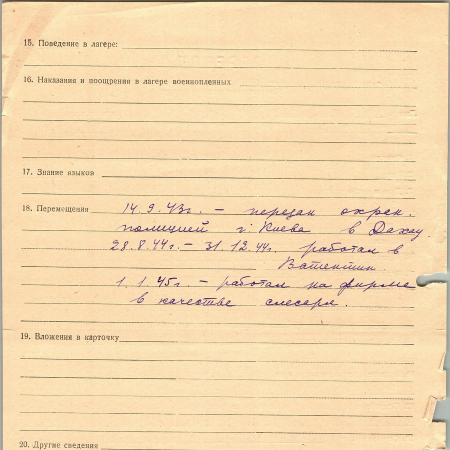 15. Поведение в лагере:
16. Наказания и поощрения в лагере военнопленных
17. Знание языков
18. Перемещения 14.9.43г. – передан охран.
полицией г. Киева в Дахау
28.8.44г. – 31.12.44г. работал в
1.1.45г. – работал на фирме
в качестве слесаря.
19. Вложения в карточку
20. Другие сведения